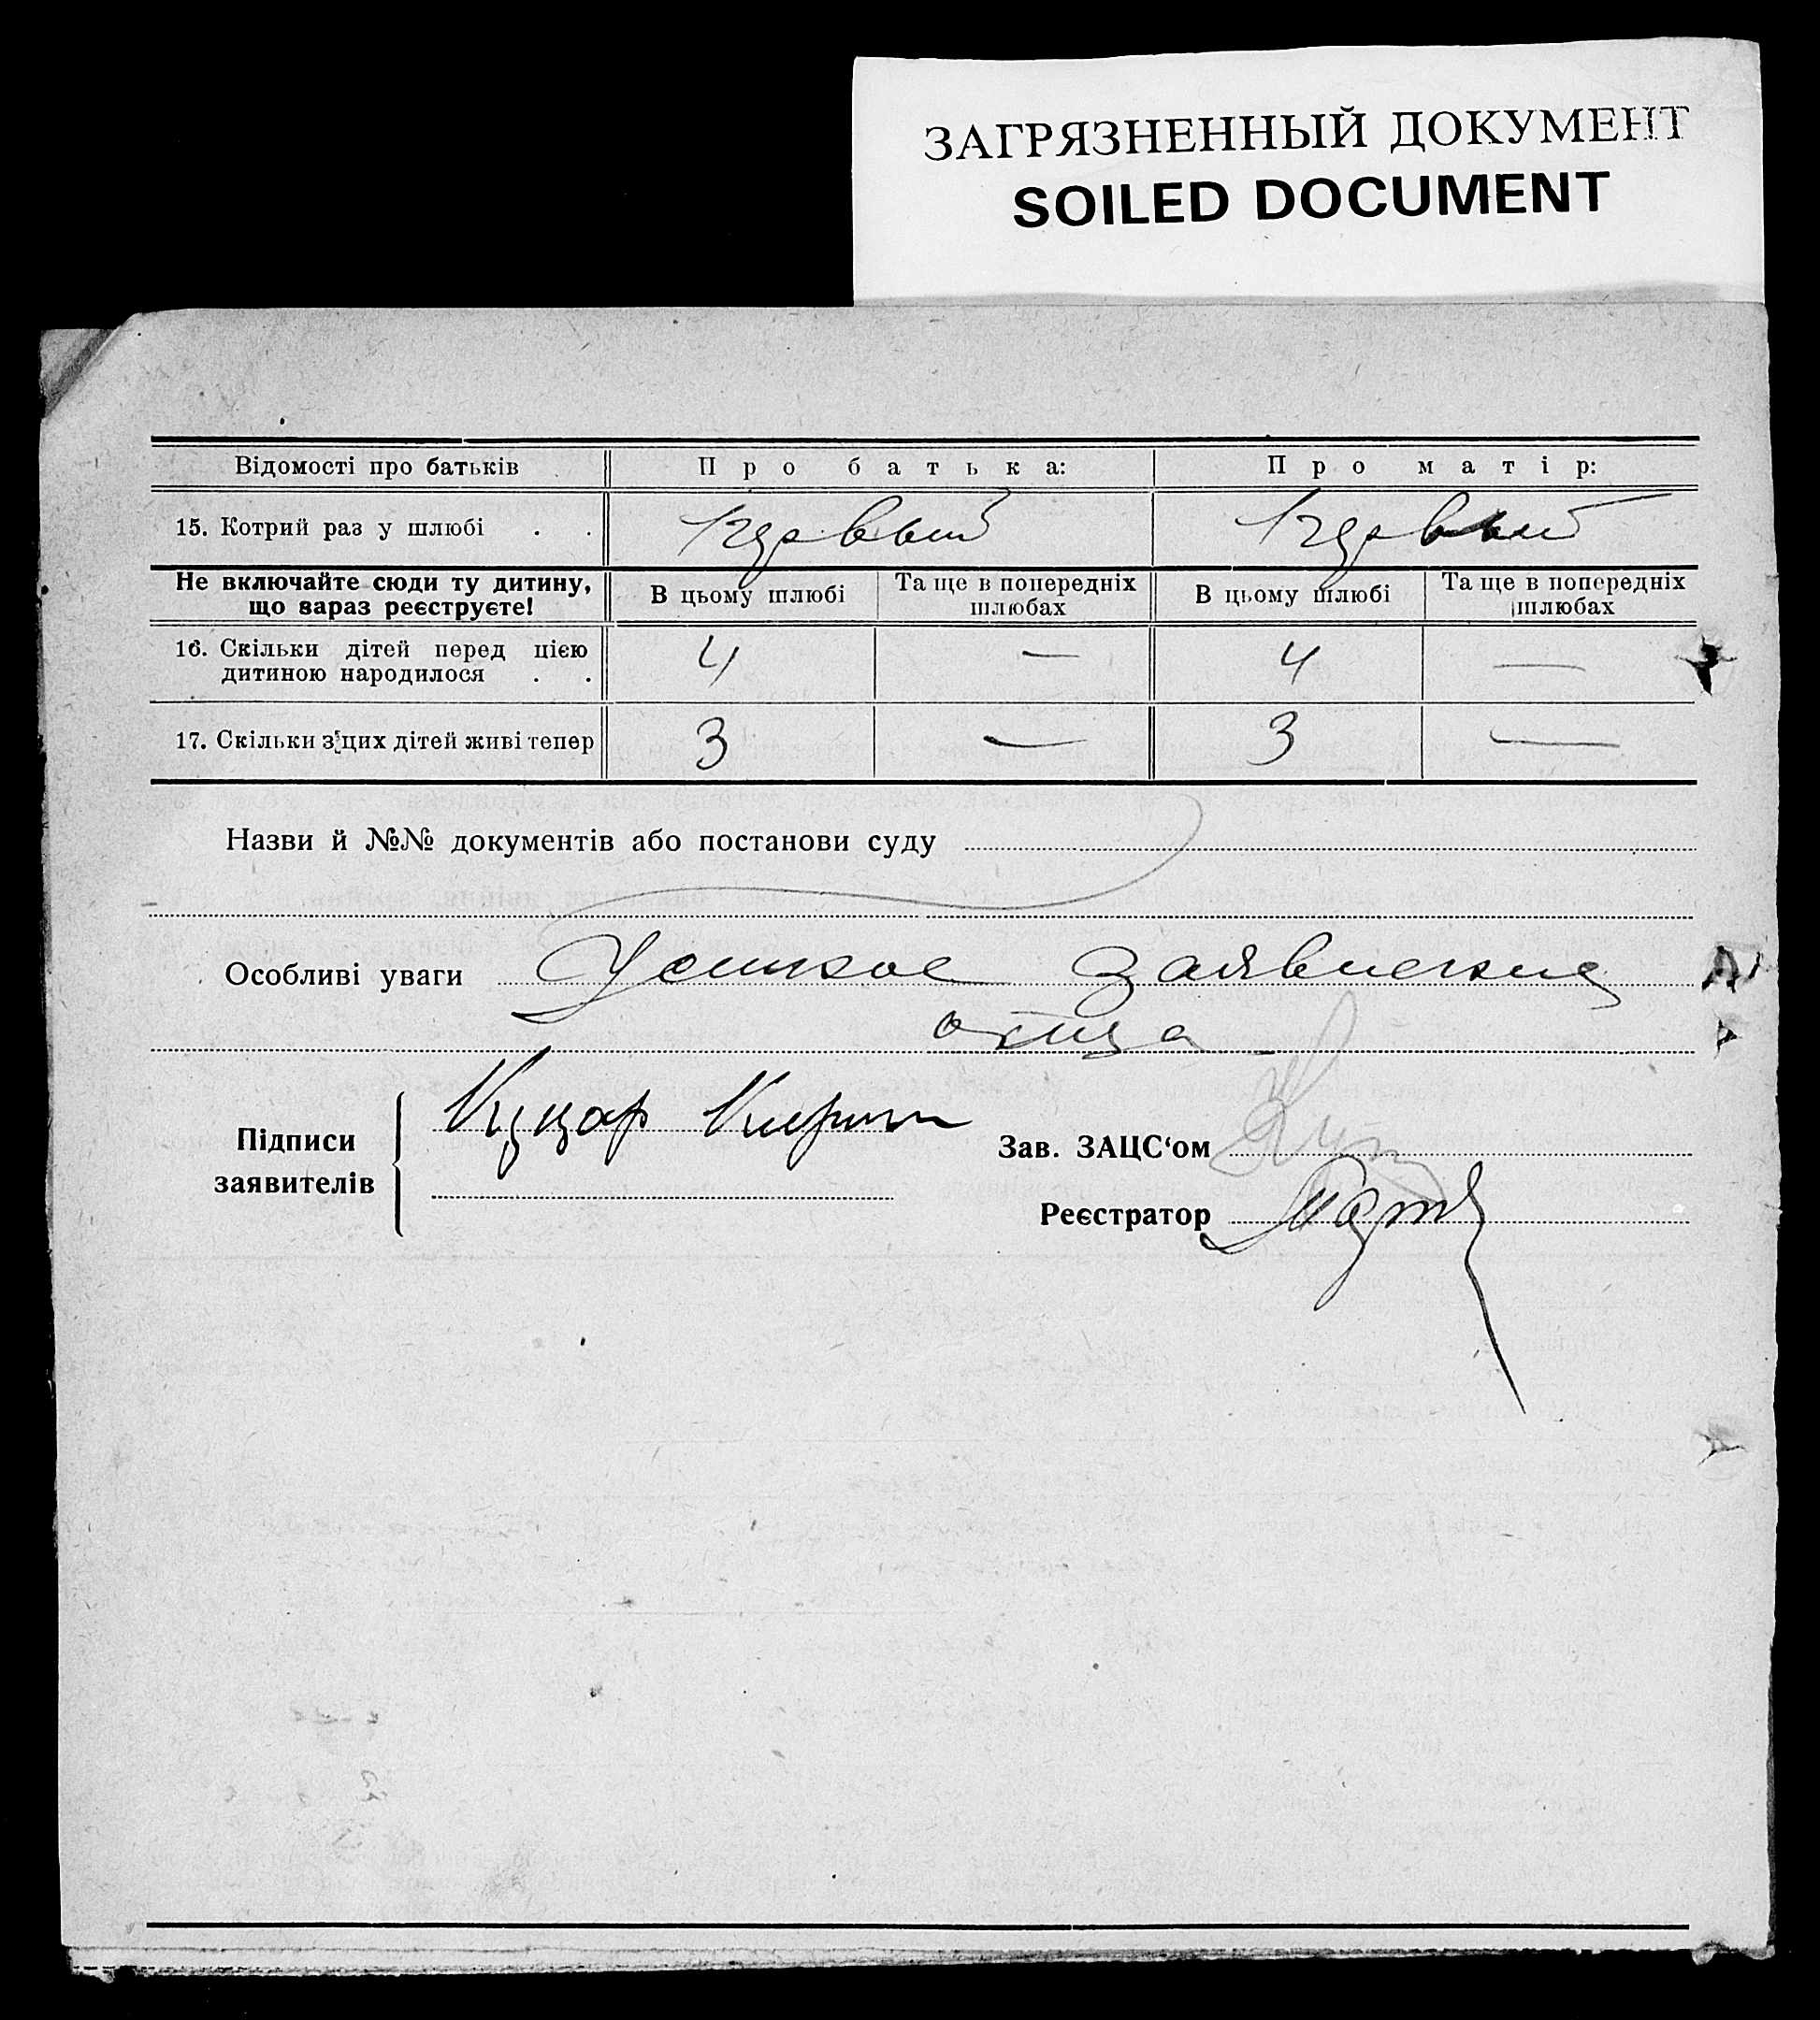 ЗАГРЯЗНЕННЫЙ ДОКУМЕНТ
SOILED DOCUMENT
Відомості про батьків Про батька: Про матір:
15. Котрий раз у шлюбі . . первый первый
Не включайте сюди ту дитину, що зараз реєструєте! В цьому шлюбі Та ще в попередніх шлюбах В цьому шлюбі Та ще в попередніх шлюбах
16. Скільки дітей перед цією
дитиною народилося . . 4 — 4 —
17. Скільки з цих дітей живі тепер 3 — 3 —
Назви й №№ документів або постанови суду
Особливі уваги Устное заявление
отца
Підписи
заявителів Куцар
Зав. ЗАЦС‘ом
Реєстратор